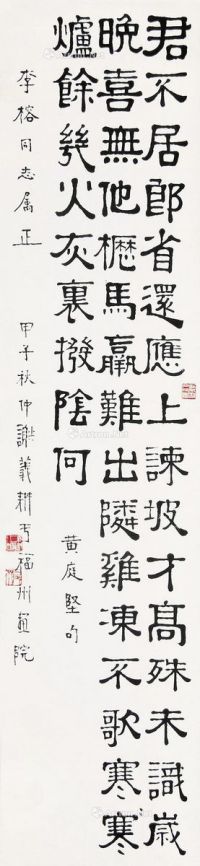 君不居郎省還應上諫坡才高殊未識歲
晚喜無他櫪馬羸難出隣雞凍不歌寒寒
爐餘幾火灰裏撥陰何
黃庭堅句
李榕同志属正
甲子秋仲謝義耕于福州画院